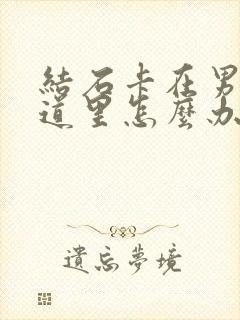 結石卡在男
道里怎麼办
遺忘夢境